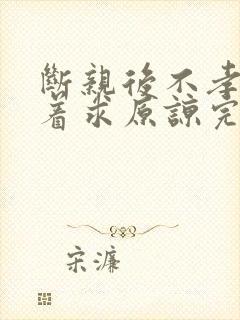 斷親後不孝
着求原諒完
宋濂